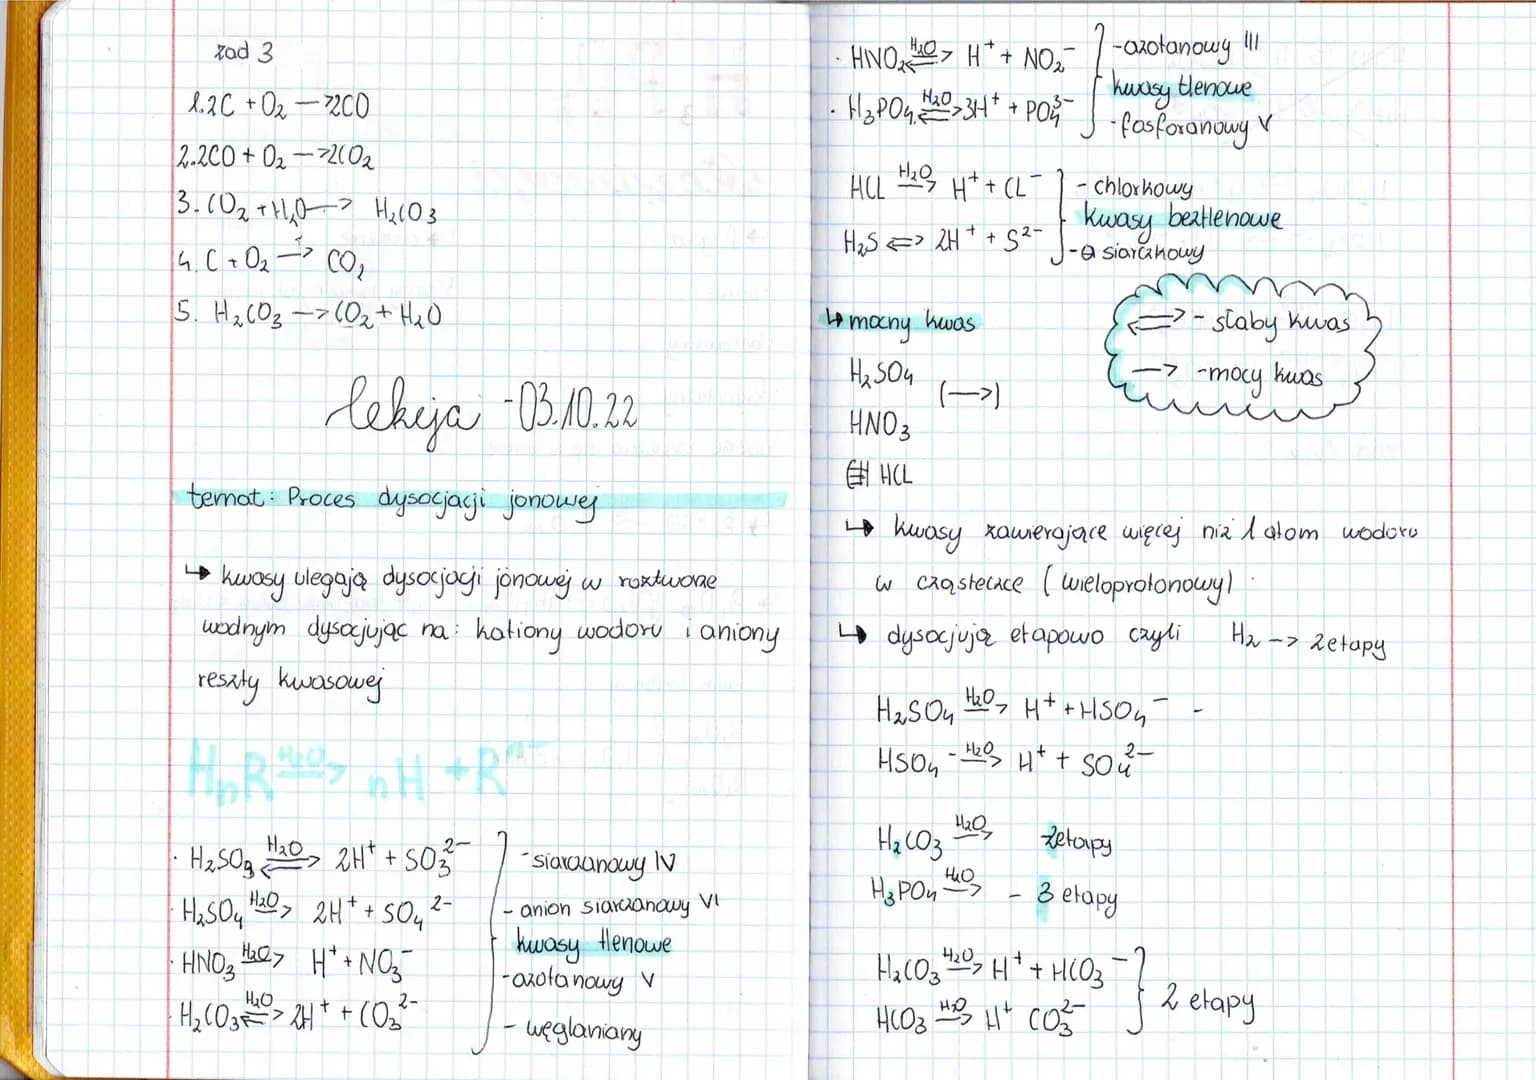 zad 3
1. 2C + O₂ —> 2CO
2. 2CO + O₂ —> 2CO₂
3. CO₂ + H₂O —> H₂CO3
4. C + O₂ —> CO₂
5. H₂CO₃ —> CO₂ + H₂O
lekcja - 03.10.22
temat: Proces dysocjacji jonowej
↳ kwasy ulegają dysocjacji jonowej w roztworze
wodnym dysocjując na: kationy wodoru i aniony
reszty kwasowej
HnR H₂O—> nH + Rⁿ⁻
· H₂SO₃ <=H₂O=> 2H⁺ + SO₃²⁻ - siarczanowy IV
· H₂SO₄ H₂O—> 2H⁺ + SO₄²⁻ - anion siarczanowy VI
kwasy tlenowe
· HNO₃ H₂O—> H⁺ + NO₃⁻ - azotanowy V
· H₂CO₃ <=H₂O=> 2H⁺ + CO₃²⁻ - węglaniany
· HNO₂ <=H₂O=> H⁺ + NO₂⁻ - azotanowy III
kwasy tlenowe
· H₃PO₄ <=H₂O=> 3H⁺ + PO₄³⁻ - fosforanowy V
HCL H₂O—> H⁺ + CL⁻ - chlorkowy
kwasy beztlenowe
H₂S <=> 2H⁺ + S²⁻ - siarczkowy
↳ mocny kwas
H₂SO₄
(—>)
HNO₃
HCL
<=> - słaby kwas
—> - mocy kwas
↳ kwasy zawierające więcej niż 1 atom wodoru
w cząsteczce (wieloprotonowy)
↳ dysocjują etapowo czyli H₂ -> 2etapy
H₂SO₄ H₂O—> H⁺ + HSO₄⁻ -
HSO₄⁻ H₂O—> H⁺ + SO₄²⁻
H₂CO₃ H₂O—> 2etapy
H₃PO₄ H₂O—> - 3 etapy
H₂CO₃ H₂O—> H⁺ + HCO₃⁻
HCO₃ H₂O—> H⁺ CO₃²⁻
2 etapy